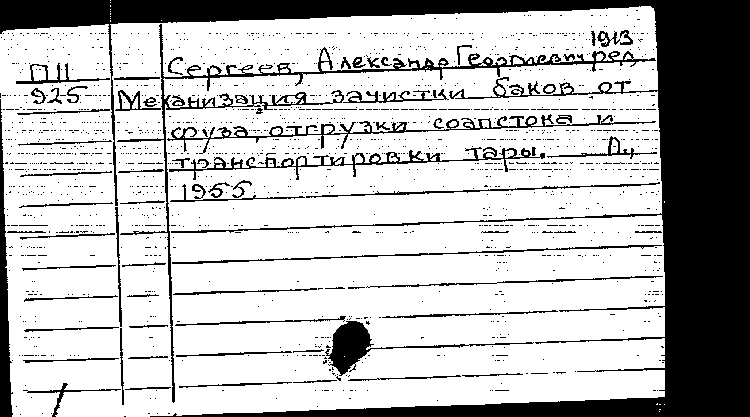 1913
П11 Сергеев, Александр Георгиевич ред.
925 Механизация зачистки баков от
фуза, отгрузки соапстока и
транспортировки тары. Л.,
1955